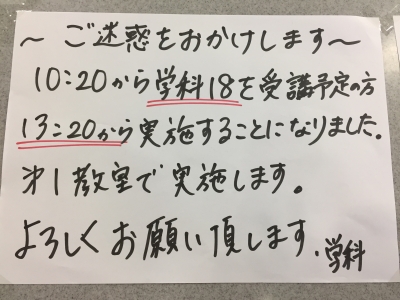 ～ご迷惑をおかけします～
10:20から学科18を受講予定の方
13:20から実施することになりました。
オ1教室で実施します。
よろしくお願い頂します.
学科